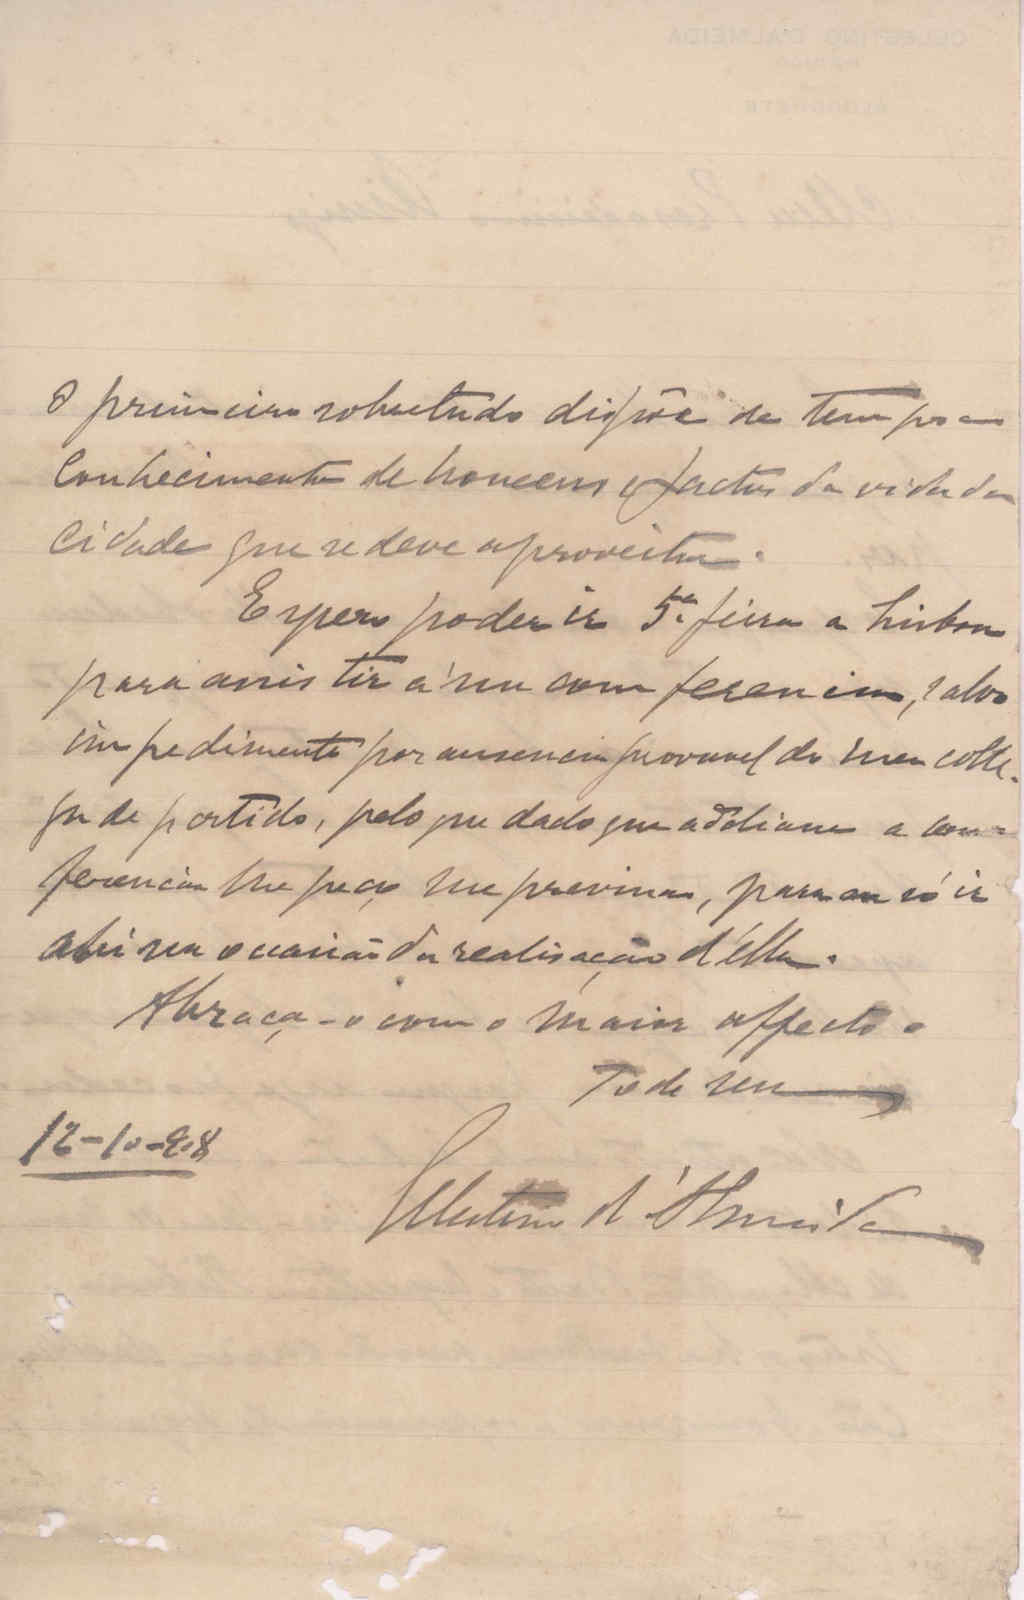 O primeiro sobretudo dispõe de tempo e
conhecimento de homens e factos da vida da
cidade que se deve aproveitar.
Espero poder ir 5.ª feira a Lisboa
para assistir á sua conferencia, salvo
impedimento por ausencia provavel do meu colle-
ga de partido, pelo que dado que addiem a con-
ferencia lhe peço me previna, para eu só ir
ahi na occasião da realisação d'ella.
Abraça-o com o maior affecto o
Todo seu
12-10-908
Celestino d'Almeida
CELESTINO D'ALMEIDA
MEDICO
ALCOCHETE